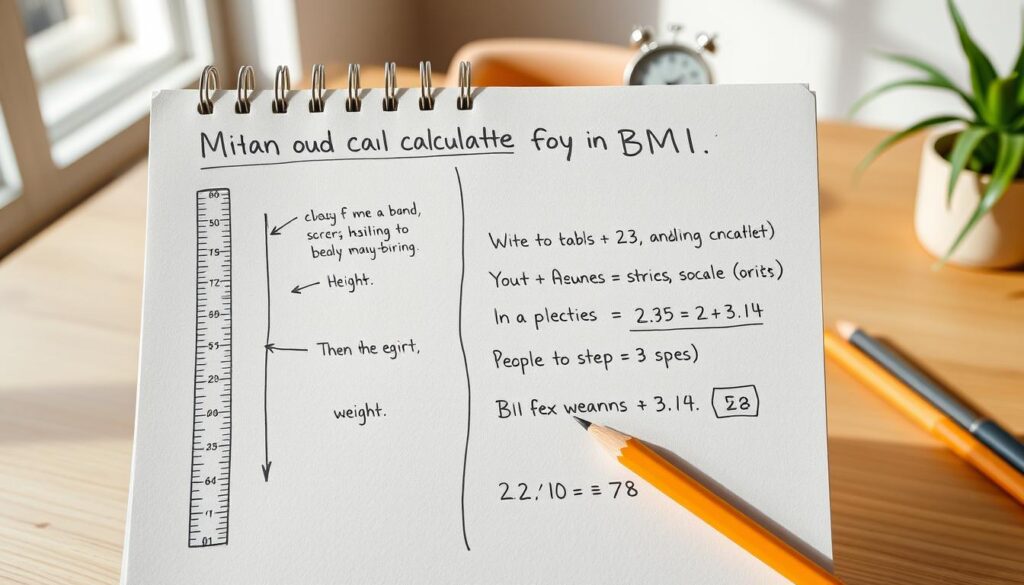 Mitan oud cail calculatte foy in BMI.
80
50
75
72
69
55
29
90
35
64
71
01
clasy f me a band,
scerr; hsiling to
bealy many-biring.
Height.
Then the egirt,
weight.
Wite to tabls + 23, anđling cncatlet)
Yout + Aeunes = strics, socale (orits)
In a plecties = 2.35 = 2 + 3.14
People to step = 3 spes)
BlI fex weanns + 3.14. 28
22.'10 = = 78